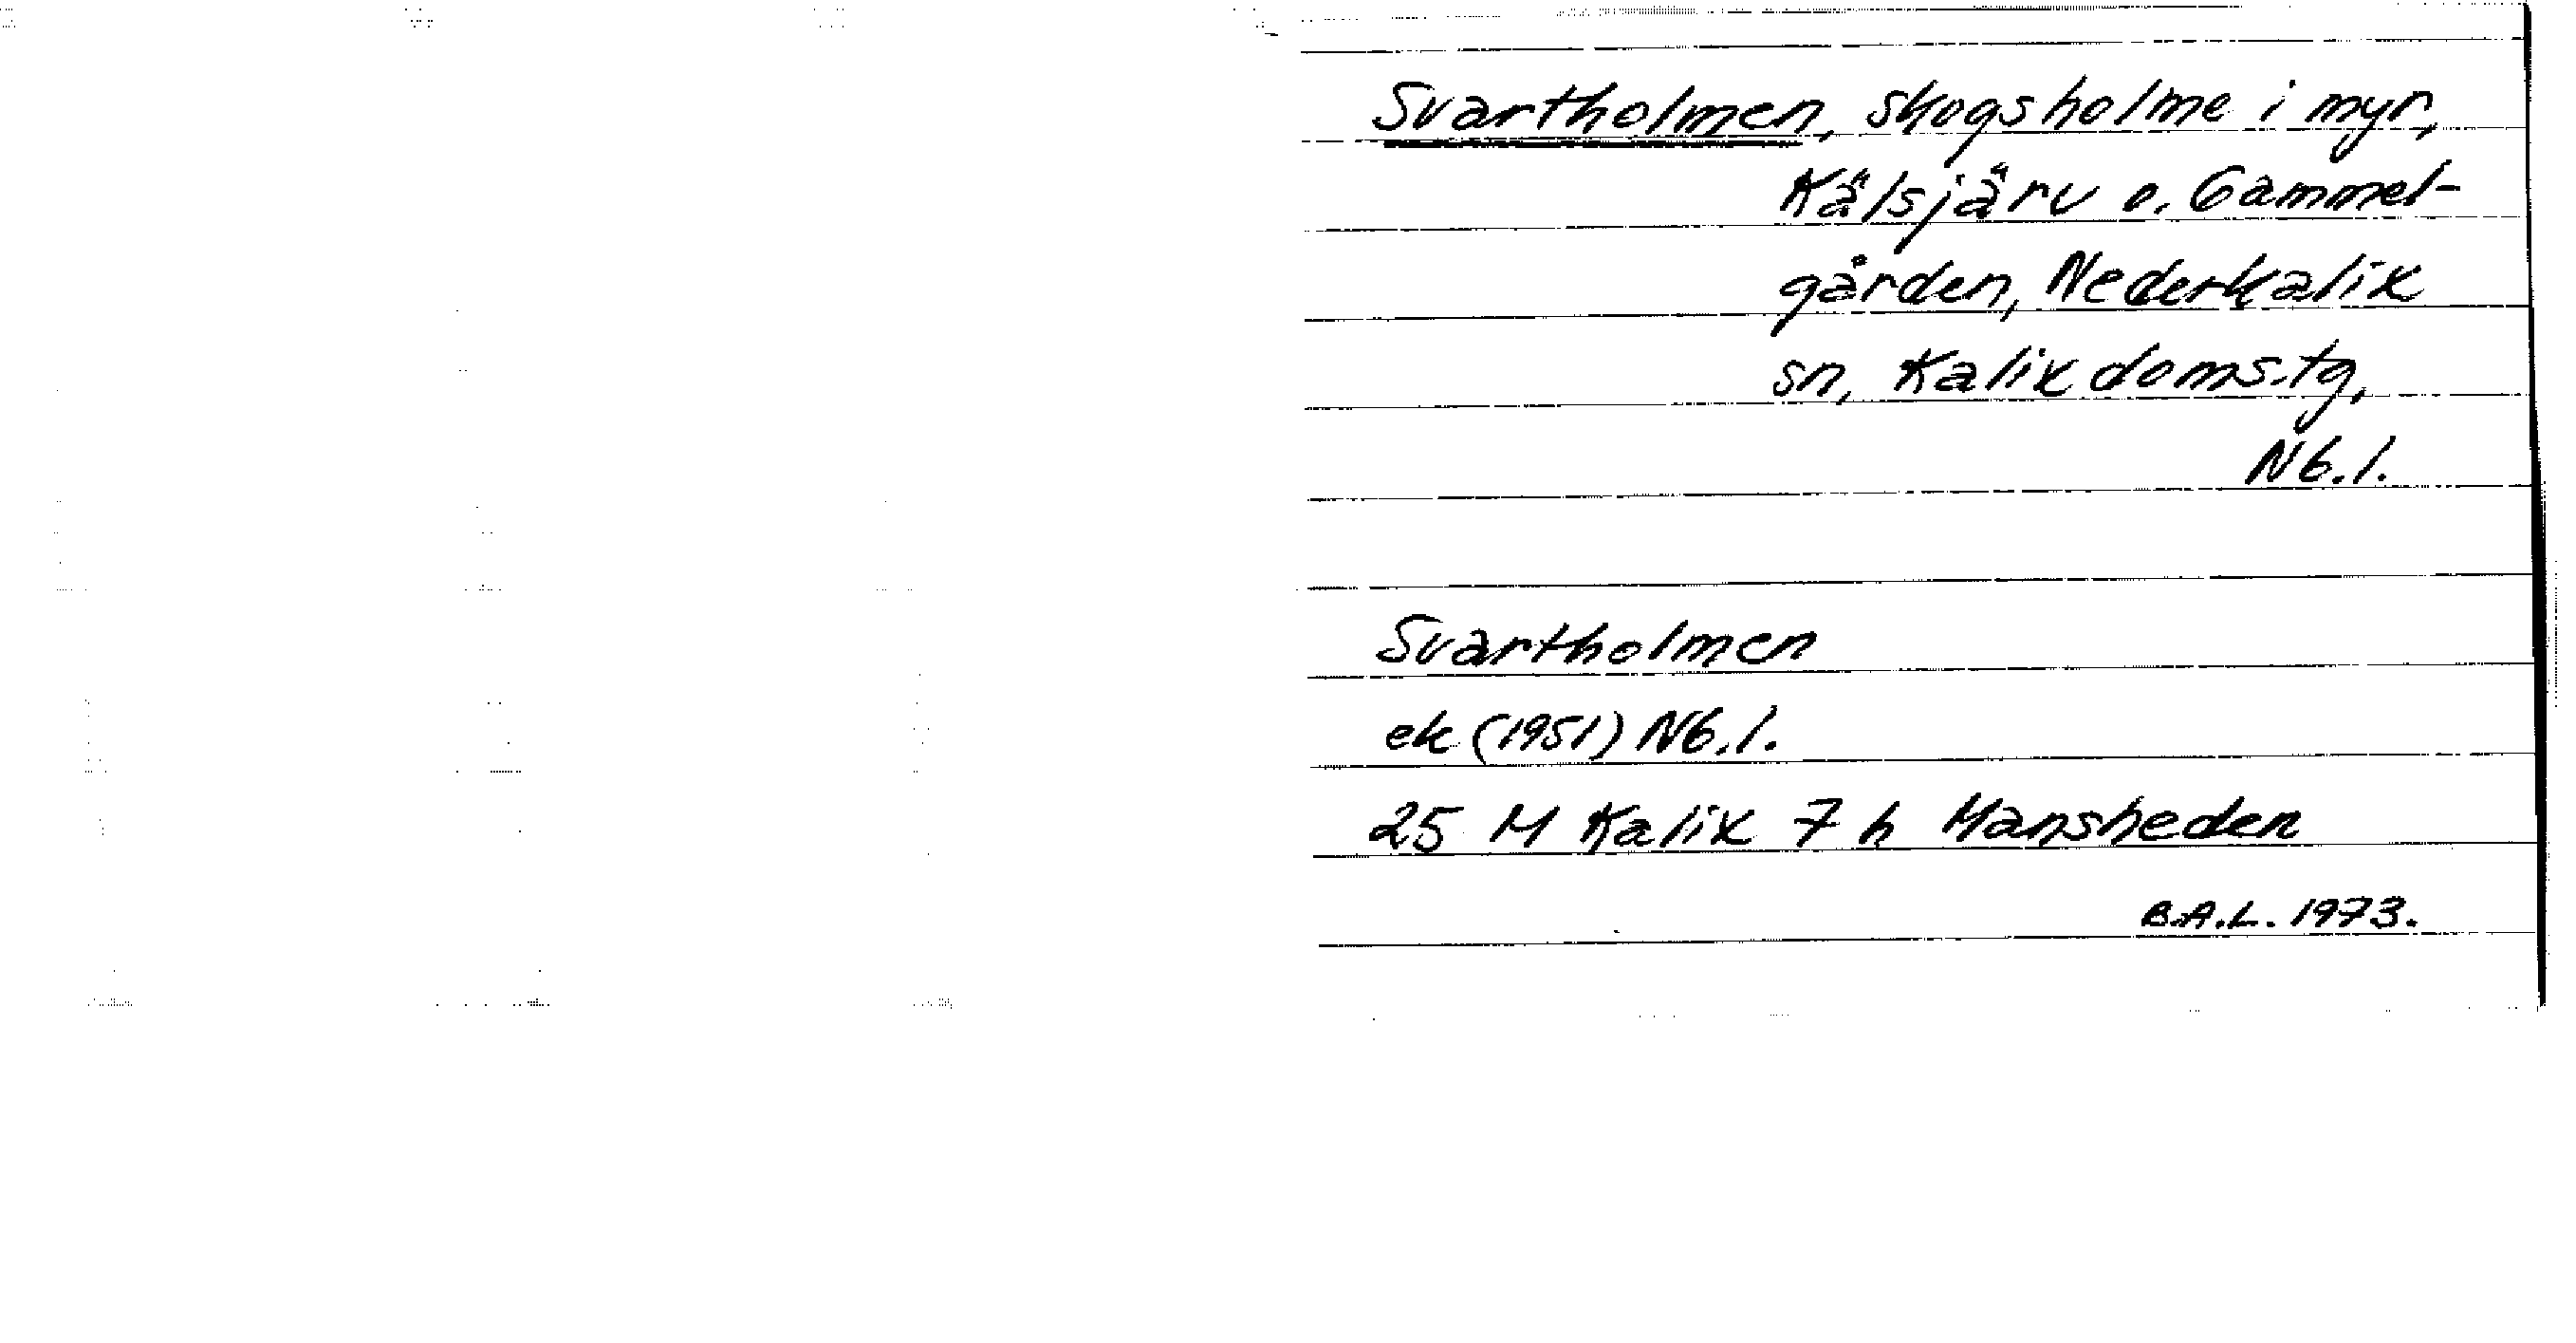 Svartholmen, skogsholme i myr,
Kälsjärv o. Gammel-
gården, Nederkalix
sn, Kalix doms.tg,
Nb.l.
Svartholmen
ek (1951) Nb.l.
25 M Kalix 7 h Mansheden
B.A.L. 1973.